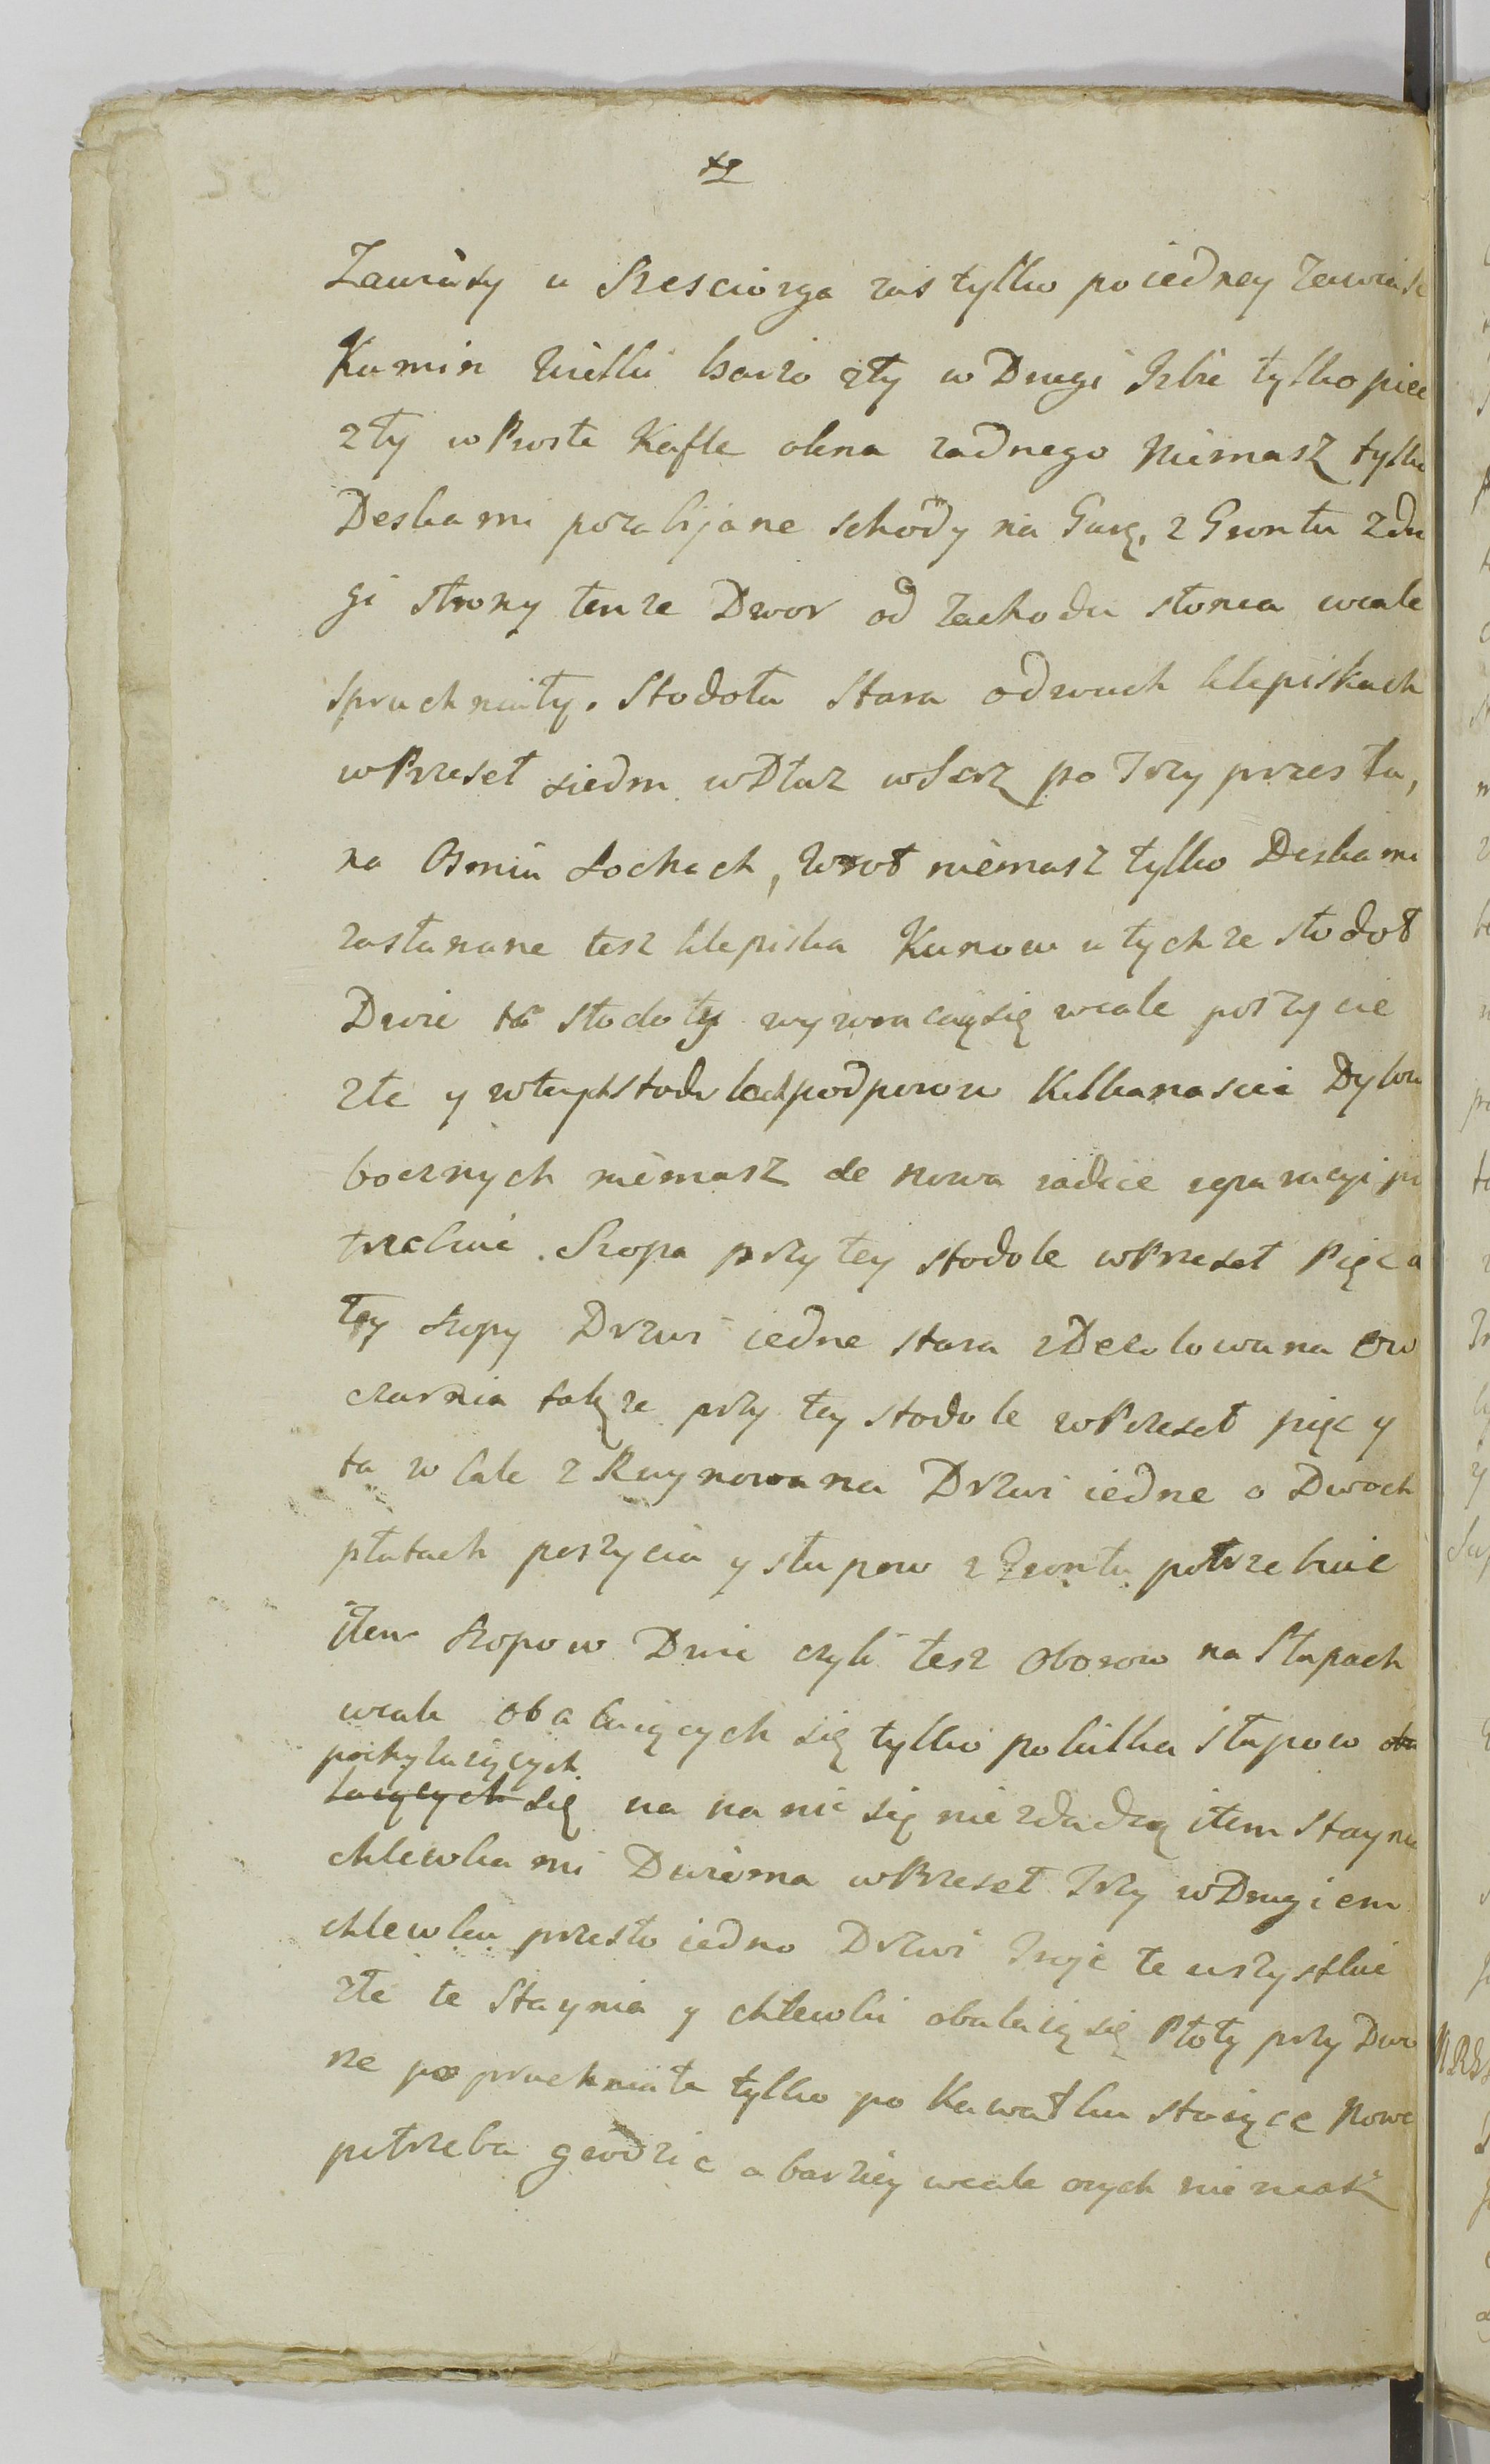 Zawiasy u Szesciorga zas tylko po iedney Zawias
Kumin Wielki barzo zły w Drugi Izbie tylko piec
zły w Proste Kafle okna zadnego Niemasz tylko
Deskami pozabijane schody na Gurę, z Gruntu zdru
gi strony tenze Dwor od Zachodu słonca wcale
spruchniały. Stodoła Stara o dwuch klepiskach
w Przeseł siedm w Dłuz w Serz po Trzy przesła,
na Osmiu Sochach, Wrot niemasz tylko Deskami
zasłanane tesz klepiska Kunow u tychze stodoł
Dwie ta stodoły wywracaią się wcale poszycie
złe y w tych stodołach podporow Kilkanascie Dylow
bocznych niemasz de nowa radice reparacyi po
trzebuie. Szopa przy tey stodole w Przeseł Pięc a
tey szopy Drzwi iedne stara zDezolowana Ow
czarnia takze przy tey stodole w Przeseł pięc y
ta w cale z Ruynowana Drzwi iedne o Dwoch
płatach poszycia y słupow z Gruntu potrzebuie
item Szopow Dwie czyli tesz Oborow na Słupach
wcale obalaiących się tylko po kilka słupow oba
pochylaiących
laiących się na na nic się nie zdadzą item Staynia
chlewkami Dwiema w Przeseł Trzy w Drugiem
chlewku przesło iedno Drzwi Troje te wszystkie
złe te Staynia y chlewki obalaią się Płoty przy Dwo
rze poprachniałe tylko po Kawałku stoiące Nowe
potrzeba grodzic a barziey wcale onych nie masz